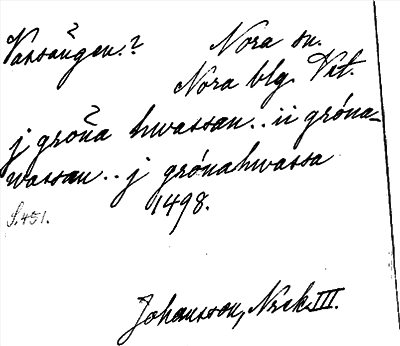 Vassängen.? Nora sn.
Nora blg. Vst.
j grona hwassan.. ii gróna-
wassan.. j grónahwassa
1498.
S. 451.
Johansson, Nrck III.